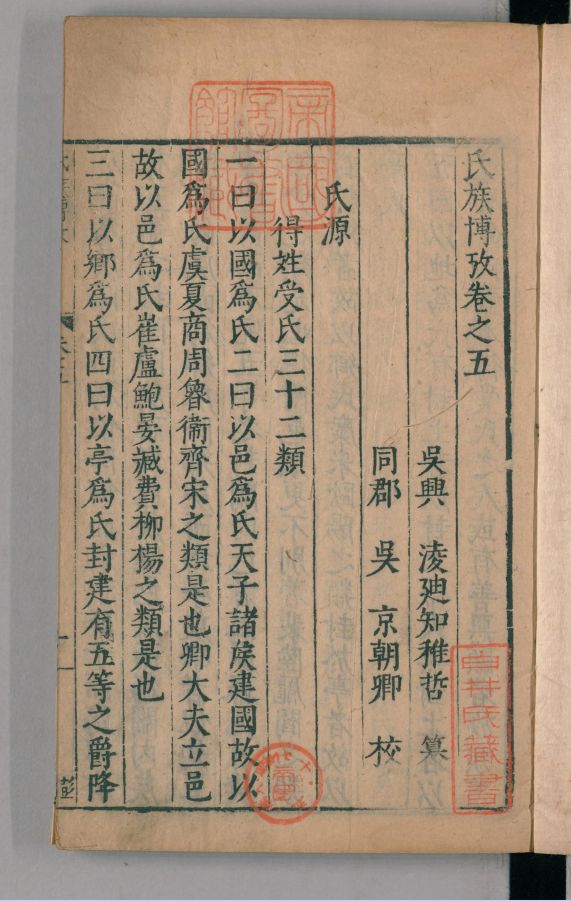 氏族博攷卷之五
吳興 淩廸知稚哲 纂
同郡 吳 京朝卿 校
氏源
得姓受氏三十二類
一曰以國爲氏二曰以邑爲氏天子諸侯建國故以
國爲氏虞夏商周魯衞齊宋之類是也卿大夫立邑
故以邑爲氏崔盧鮑晏臧費柳楊之類是也
三曰以鄉爲氏四曰以亭爲氏封建有五等之爵降
帝國圖書館藏
白井氏藏書